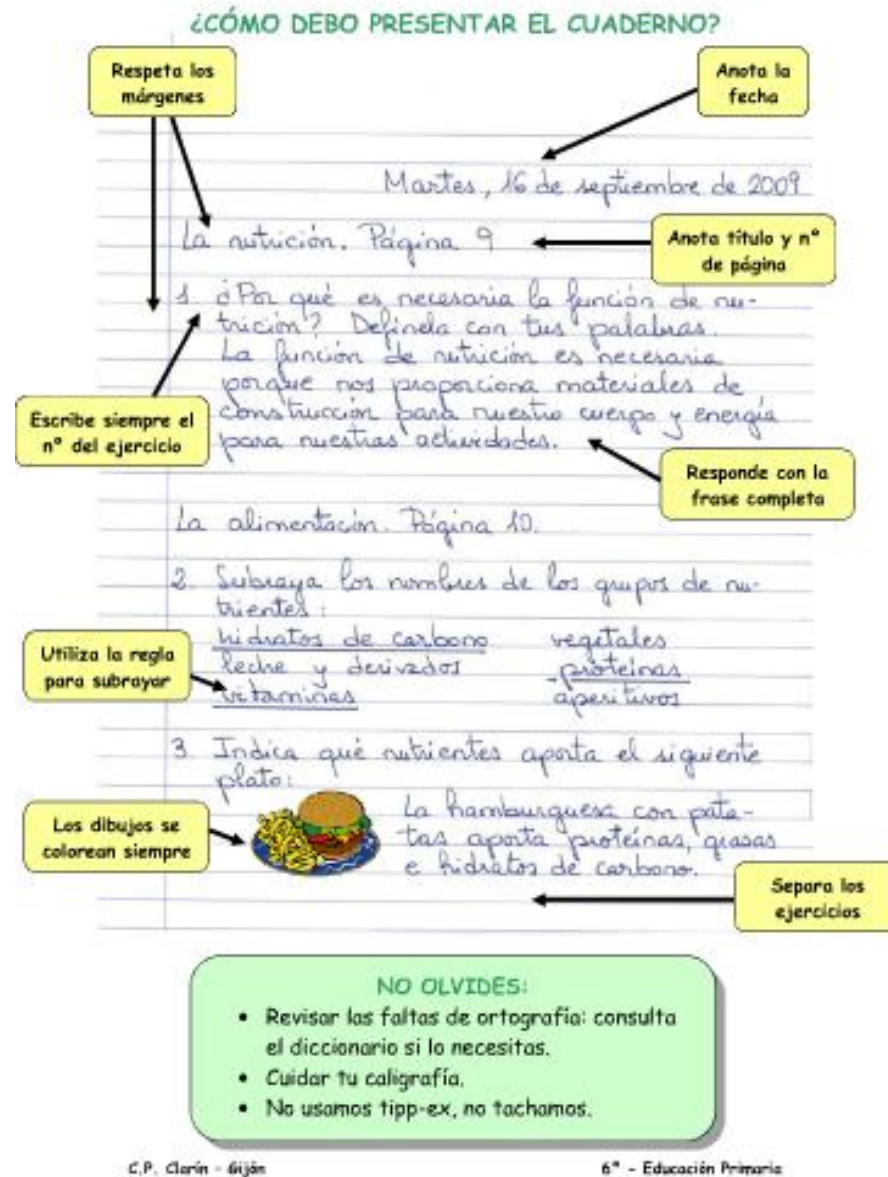 ¿CÓMO DEBO PRESENTAR EL CUADERNO?
Respeta los
márgenes
Anota la
fecha
Martes, 16 de septiembre de 2009
La nutrición. Página 9
Anota título y nº
de página
1. ¿Por qué es necesaria la función de nu-
trición? Defínela con tus palabras.
La función de nutrición es necesaria
porque nos proporciona materiales de
construcción para nuestro cuerpo y energía
para nuestras actividades.
Escribe siempre el
nº del ejercicio
Responde con la
frase completa
La alimentación. Página 10.
2. Subraya los nombres de los grupos de nu-
trientes:
hidratos de carbono vegetales
leche y derivados proteínas
vitaminas aperitivos
Utiliza la regla
para subrayar
3 Indica qué nutrientes aporta el siguiente
plato:
La hamburguesa con pata-
tas aporta proteínas, grasas
e hidratos de carbono.
Los dibujos se
colorean siempre
Separa los
ejercicios
NO OLVIDES:
• Revisar las faltas de ortografía: consulta
el diccionario si lo necesitas.
• Cuidar tu caligrafía.
• No usamos tipp-ex, no tachamos.
C.P. Clarín - Gijón 6º - Educación Primaria